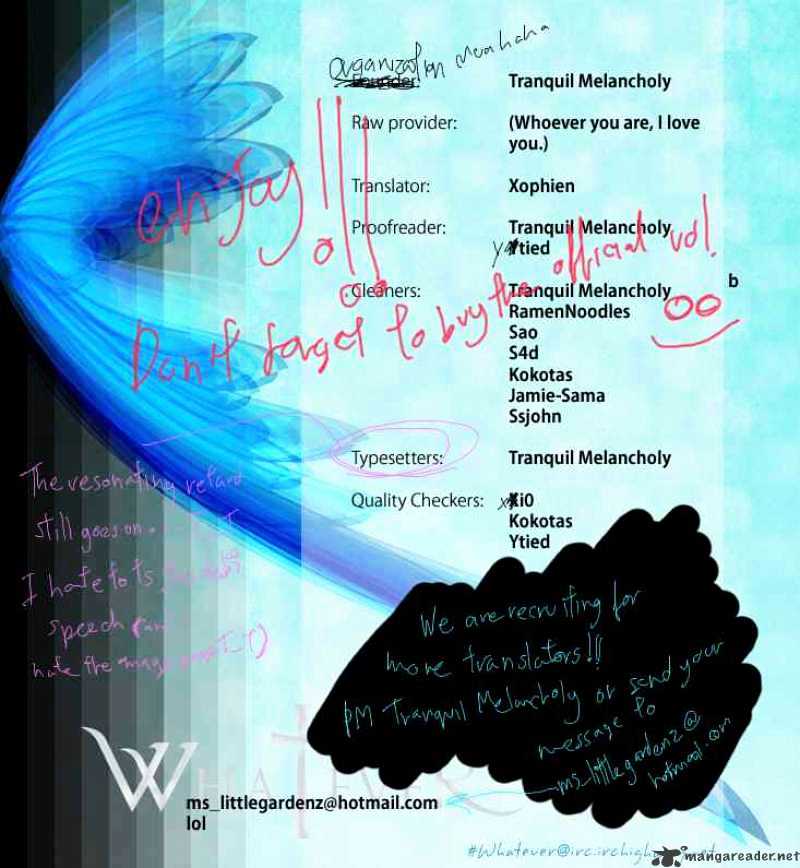 Organization Muahaha
Founder: Tranquil Melancholy
Raw provider: (Whoever you are, I love
you.)
Translator: Xophien
enjoy!!!
Proofreader: Tranquil Melancholy
Ytied
Don't forget to buy the official vol!
Cleaners: Tranquil Melancholy
b
RamenNoodles
Sao
S4d
Kokotas
Jamie-Sama
Ssjohn
Typesetters: Tranquil Melancholy
The resonating retard
still goes on
I hate to ts
speech
hate the
Quality Checkers: Xi0
Kokotas
Ytied
We are recruiting for
more translators!!!
PM Tranquil Melancholy or send your
message to
ms_littlegardenz@
hotmail.com
WHATEVER
ms_littlegardenz@hotmail.com
lol
#Whatever@irc.irchigh
mangareader.net